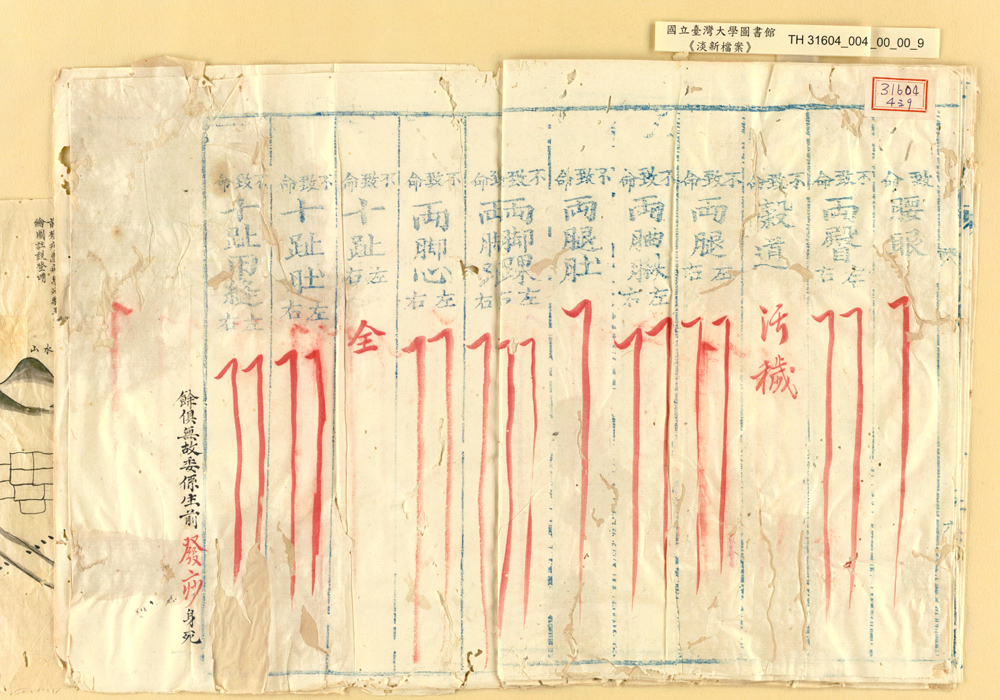 國立臺灣大學圖書館
《淡新檔案》
TH 31604_004_00_00_9
31604
439
致命 腰眼
不致命 兩臀 左右
不致命 穀道 汚穢
不致命 兩腿 左右
不致命 兩 左右
不致命 兩腿肚
不致命 兩脚踝 左右
不致命 兩脚 左右
不致命 兩脚心 左右
不致命 十趾 左右 全
不致命 十趾肚 左右
不致命 十趾甲縫 左右
餘俱無故委係生前發痧身死
繪圖註說
山水